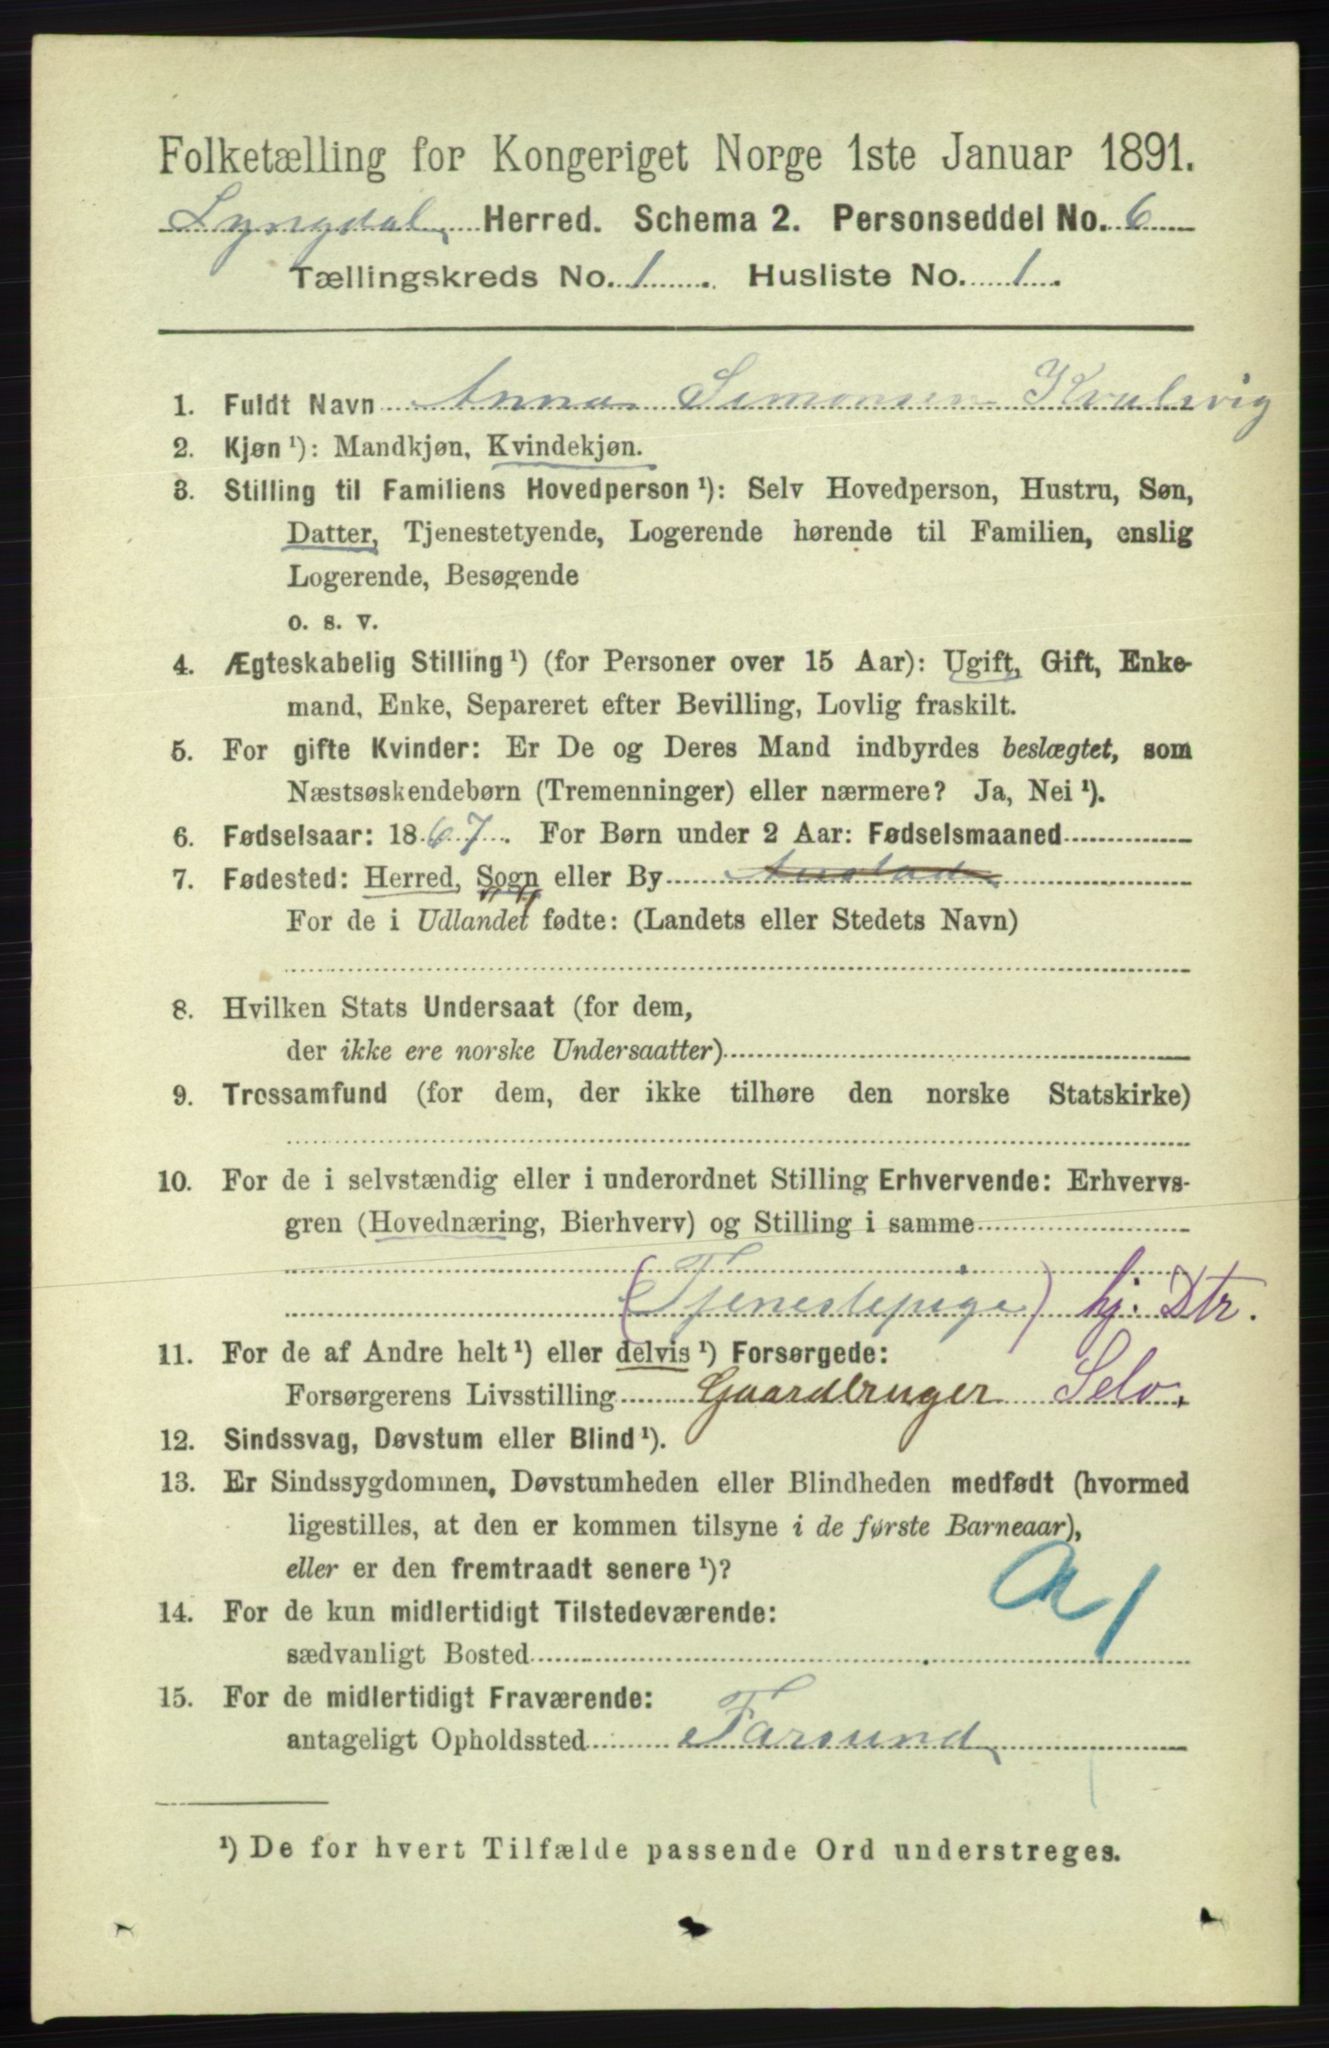 Folketælling for Kongeriget Norge 1ste Januar 1891.
Lyngdal Herred. Schema 2. Personseddel No. 6
Tællingskreds No. 1. Husliste No. 1.
1. Fuldt Navn Anna Simonsen Kvalsvig
2. Kjøn ¹): Mandkjøn, Kvindekjøn.
3. Stilling til Familiens Hovedperson ¹): Selv Hovedperson, Hustru, Søn,
Datter, Tjenestetyende, Logerende hørende til Familien, enslig
Logerende, Besøgende
o. s. v.
4. Ægteskabelig Stilling ¹) (for Personer over 15 Aar): Ugift, Gift, Enke-
mand, Enke, Separeret efter Bevilling, Lovlig fraskilt.
5. For gifte Kvinder: Er De og Deres Mand indbyrdes beslægtet, som
Næstsøskendebørn (Tremenninger) eller nærmere? Ja, Nei ¹).
6. Fødselsaar: 1867. For Børn under 2 Aar: Fødselsmaaned
7. Fødested: Herred, Sogn eller By
For de i Udlandet fødte: (Landets eller Stedets Navn)
8. Hvilken Stats Undersaat (for dem,
der ikke ere norske Undersaatter)
9. Trossamfund (for dem, der ikke tilhøre den norske Statskirke)
10. For de i selvstændig eller i underordnet Stilling Erhvervende: Erhvervs-
gren (Hovednæring, Bierhverv) og Stilling i samme
(Tjenestepige) hj. Dtr.
11. For de af Andre helt ¹) eller delvis ¹) Forsørgede:
Forsørgerens Livsstilling Gaardbruger Selv.
12. Sindssvag, Døvstum eller Blind ¹).
13. Er Sindssygdommen, Døvstumheden eller Blindheden medfødt (hvormed
ligestilles, at den er kommen tilsyne i de første Barneaar),
eller er den fremtraadt senere ¹)?
14. For de kun midlertidigt Tilstedeværende:
sædvanligt Bosted
15. For de midlertidigt Fraværende:
antageligt Opholdssted Farsund
¹) De for hvert Tilfælde passende Ord understreges.